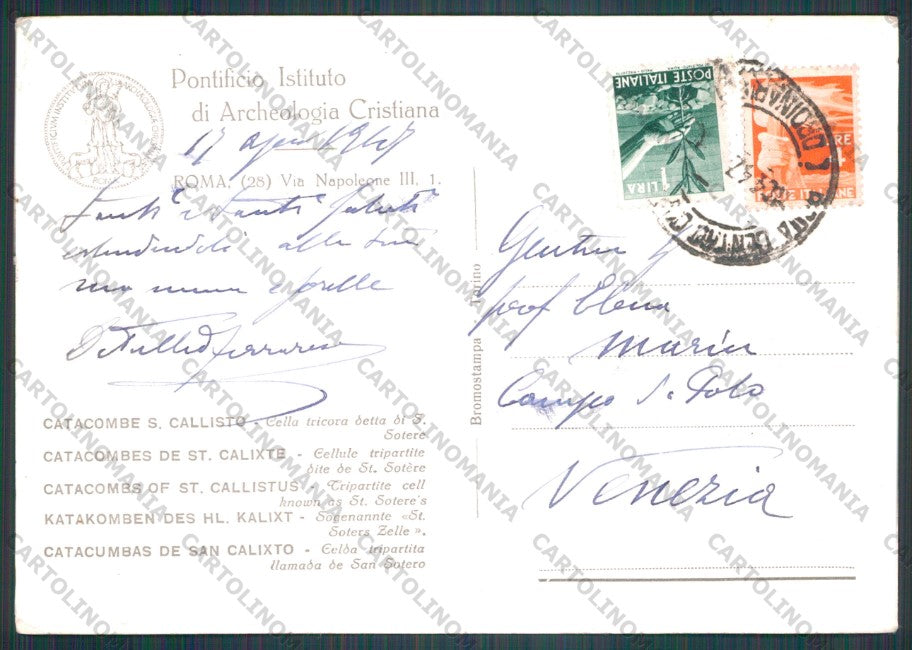 Pontificio Istituto
di Archeologia Cristiana
17 apr 1947
ROMA, (28) Via Napoleone III, 1.
Tanti e tanti saluti
estendendoli alla sua
mamma e sorelle
CATACOMBE S. CALLISTO - Cella tricora detta di S.
Sotere
CATACOMBES DE ST. CALIXTE - Cellule tripartite
dite de St. Sotère
CATACOMBS OF ST. CALLISTUS - Tripartite cell
known as St. Sotere's
KATAKOMBEN DES HL. KALIXT - Sogenannte «St.
Soters Zelle».
CATACUMBAS DE SAN CALIXTO - Celda tripartita
llamada de San Sotero
Bromostampa Torino
POSTE ITALIANE
1 LIRA
prof Elena
Marin
Campo S. Polo
Venezia
CARTOLINOMANIA